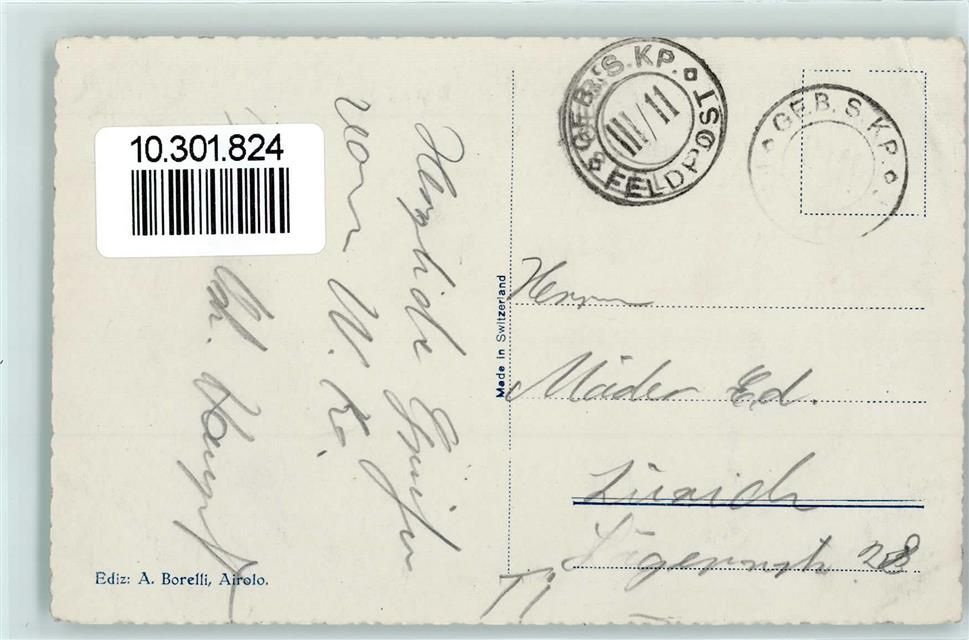 10.301.824
GEB. S. KP.
III/11
FELDPOST
GEB. S. KP.
Herzliche Grüße
von W. K.
Made in Switzerland
Herrn
Mäder Ed.
Zürich
28
Ediz: A. Borelli, Airolo.